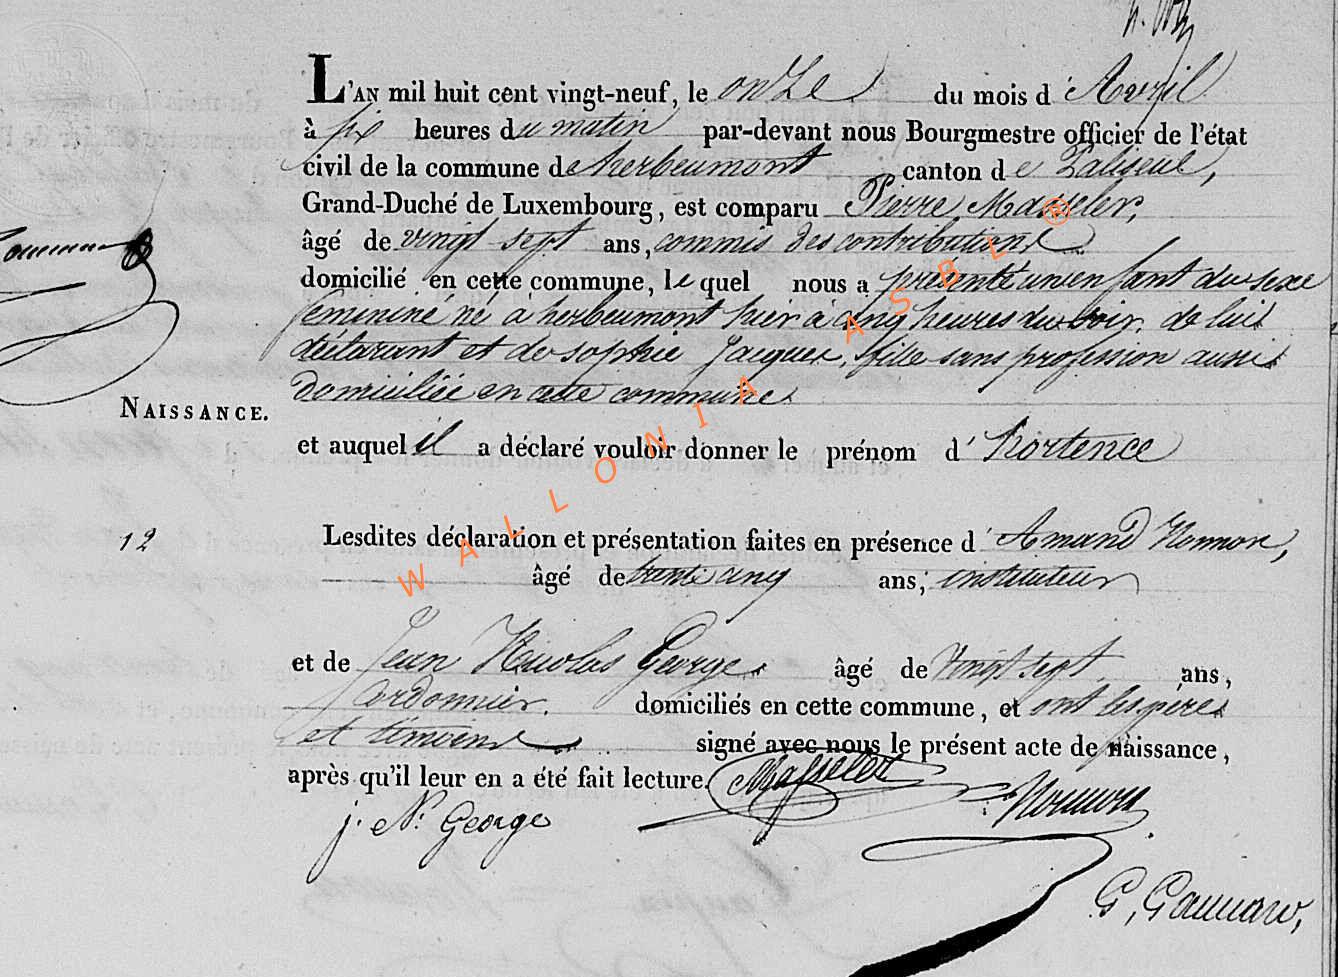 L'AN mil huit cent vingt-neuf, le onze du mois d'Avril
à six heures du matin par-devant nous Bourgmestre officier de l'état
civil de la commune de herbeumont canton de Paliseul,
Grand-Duché de Luxembourg, est comparu Pierre Masseler,
âgé de vingt sept ans, commis des contributions
domicilié en cette commune, le quel nous a présenté un enfant du sexe
feminine né à herbeumont hier à cinq heures du soir, de lui
déclarant et de sophie Jacques, fille sans profession aussi
domiciliée en cette commune
NAISSANCE.
et auquel il a déclaré vouloir donner le prénom d'hortence
12
Lesdites déclaration et présentation faites en présence d'Amand
âgé de trente cinq ans, instituteur
et de Jean Nicolas George âgé de vingt sept ans,
Cordonnier. domiciliés en cette commune, et ont les pères
et témoins signé avec nous le présent acte de naissance,
après qu'il leur en a été fait lecture. Masseler
j. N. George
WALLONIA ASBL ®